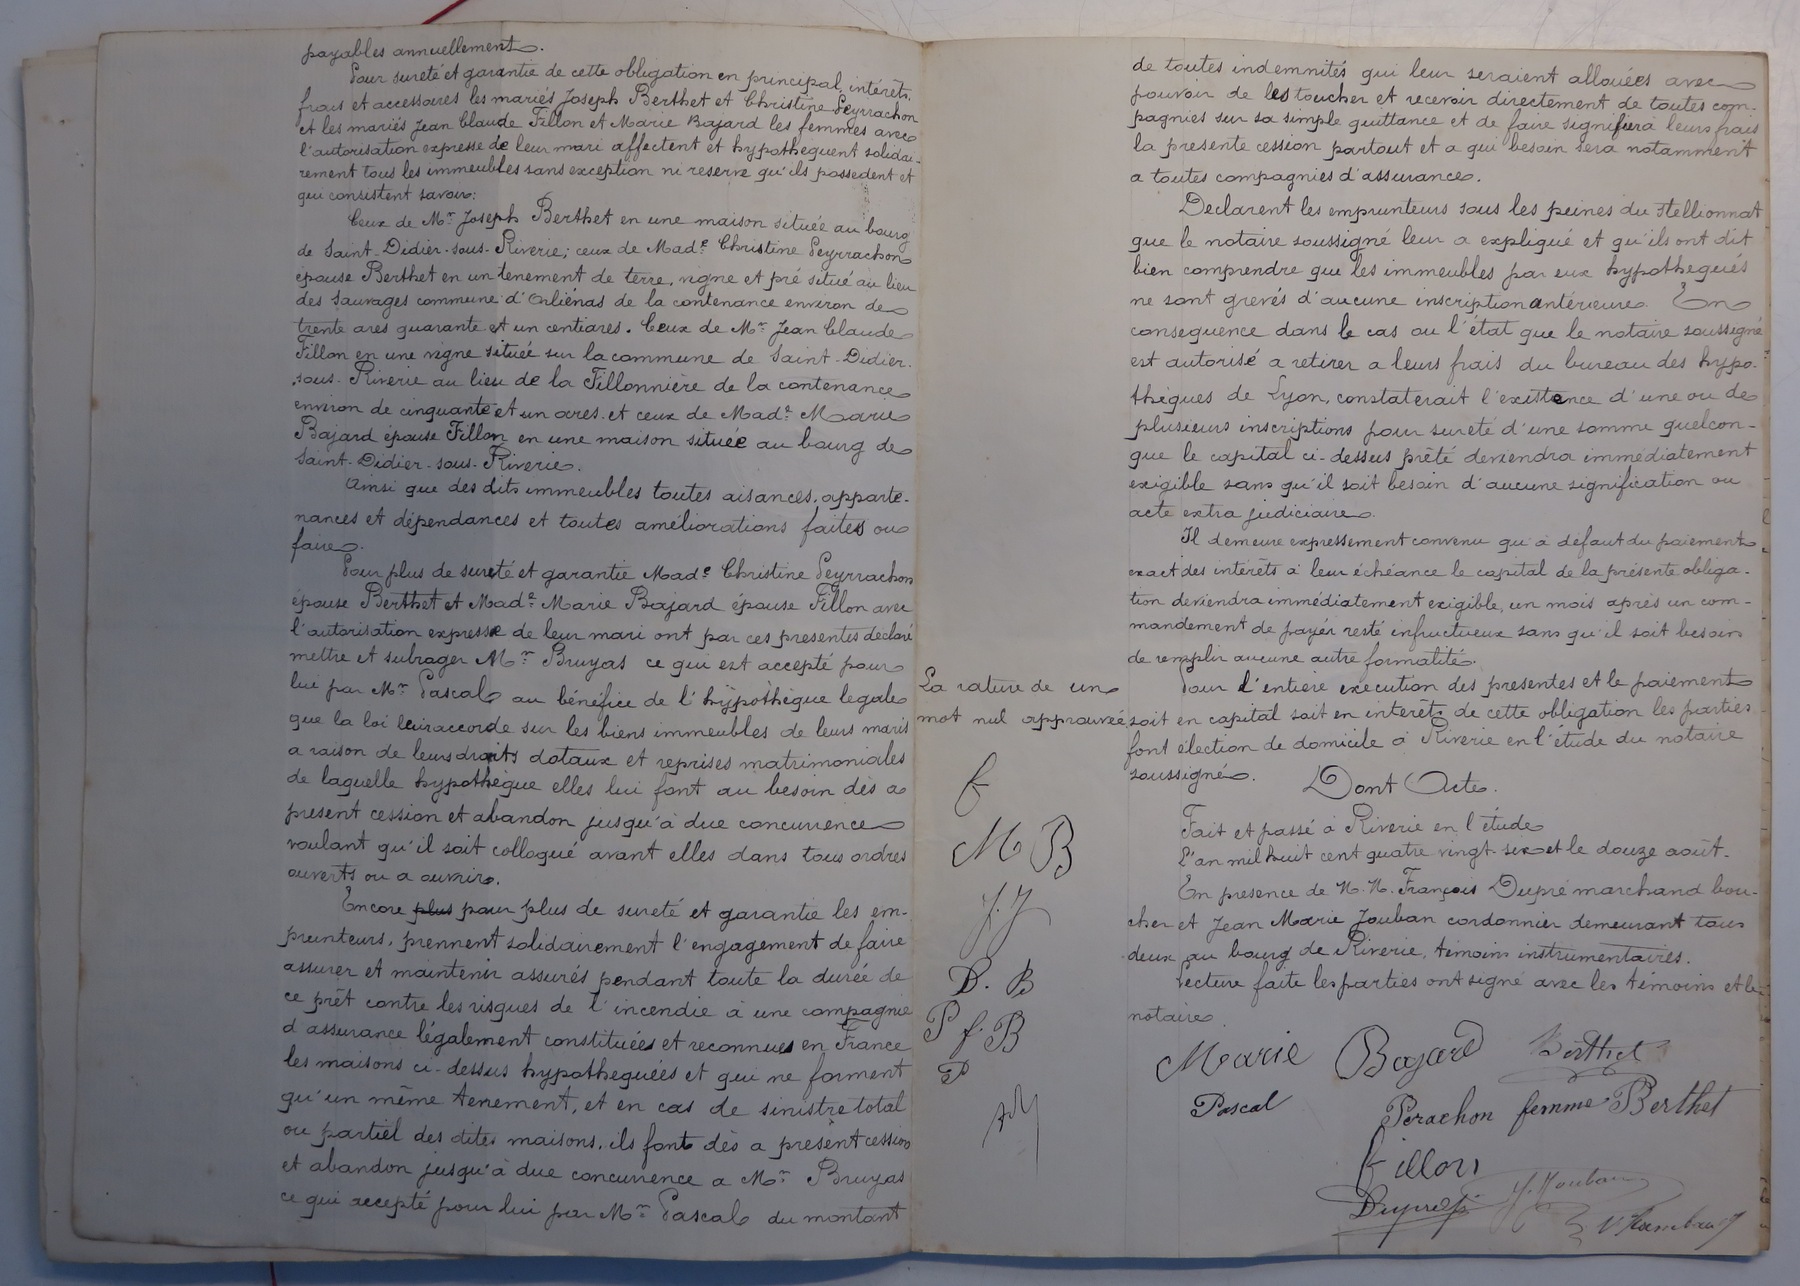 payables annuellement.
Pour sureté et garantie de cette obligation en principal, intérêts,
frais et accessoires les mariés Joseph Berthet et Christine Peyrrachon
et les mariés Jean Claude Fillon et Marie Bajard les femmes avec
l'autorisation expresse de leur mari affectent et hypothequent solidai-
rement tous les immeubles sans exception ni reserve qu'ils possedent et
qui consistent savoir:
Ceux de Mr Joseph Berthet en une maison située au bourg
de Saint-Didier-sous-Riverie; ceux de Made Christine Peyrrachon
épouse Berthet en un tenement de terre, vigne et pré situé au lieu
des Sauvages commune d'Orliénas de la contenance environ de
trente ares quarante et un centiares. Ceux de Mr Jean Claude
Fillon en une vigne située sur la commune de Saint-Didier-
sous-Riverie au lieu de la Fillonnière de la contenance
environ de cinquante et un ares. et ceux de Made Marie
Bajard épouse Fillon en une maison située au bourg de
Saint-Didier-sous-Riverie.
Ainsi que des dits immeubles toutes aisances, apparte-
nances et dépendances et toutes améliorations faites ou
faire.
Pour plus de sureté et garantie Made Christine Peyrrachon
épouse Berthet et Made Marie Bajard épouse Fillon avec
l'autorisation expresse de leur mari ont par ces presentes déclaré
mettre et subroger Mr Bruyas ce qui est accepté pour
lui par Mr Pascal au bénéfice de l'hypothèque legale
que la loi leur accorde sur les biens immeubles de leurs maris
a raison de leurs droits dotaux et reprises matrimoniales
de laquelle hypothèque elles lui font au besoin dès a
present cession et abandon jusqu'à due concurrence
voulant qu'il soit colloqué avant elles dans tous ordres
ouverts ou a ouvrir.
Encore plus pour plus de sureté et garantie les em-
prunteurs, prennent solidairement l'engagement de faire
assurer et maintenir assurés pendant toute la durée de
ce prêt contre les risques de l'incendie à une compagnie
d'assurance légalement constituées et reconnues en France
les maisons ci-dessus hypothequées et qui ne forment
qu'un même tenement, et en cas de sinistre total
ou partiel des dites maisons, ils font dès a présent cession
et abandon jusqu'à due concurrence a Mr Bruyas
ce qui accepté pour lui par Mr Pascal du montant
La rature de un
mot nul approuvée
f
M B
J. J
D. B
P f B
P
de toutes indemnités qui leur seraient allouées avec
pouvoir de les toucher et recevoir directement de toutes com-
pagnies sur sa simple quittance et de faire signifier a leurs frais
la presente cession partout et a qui besoin sera notamment
a toutes compagnies d'assurance.
Declarent les emprunteurs sous les peines du stellionnat
que le notaire soussigné leur a expliqué et qu'ils ont dit
bien comprendre que les immeubles par eux hypothequés
ne sont grevés d'aucune inscription antérieure. En
consequence dans le cas ou l'état que le notaire soussigné
est autorisé a retirer a leurs frais du bureau des hypo-
thèques de Lyon, constaterait l'existence d'une ou de
plusieurs inscriptions pour sureté d'une somme quelcon-
que le capital ci-dessus prêté deviendra immédiatement
exigible sans qu'il soit besoin d'aucune signification ou
acte extra judiciaire.
Il demeure expressement convenu qu'à défaut du paiement
exact des intérêts à leur échéance le capital de la présente obliga-
tion deviendra immédiatement exigible, un mois après un com-
mandement de payer resté infructueux sans qu'il soit besoin
de remplir aucune autre formalité.
Pour l'entière execution des presentes et le paiement
soit en capital soit en interêts de cette obligation les parties
font élection de domicile à Riverie en l'étude du notaire
soussigné. Dont Acte.
Fait et passé à Riverie en l'étude
L'an mil huit cent quatre vingt-six et le douze août.
En presence de M. M. François Dupré marchand bou-
cher et Jean Marie Jouban cordonnier demeurant tous
deux au bourg de Riverie, témoins instrumentaires.
Lecture faite les parties ont signé avec les témoins et le
notaire
Marie Bajard Berthet
Pascal Perachon femme Berthet
fillon
J. Jouban